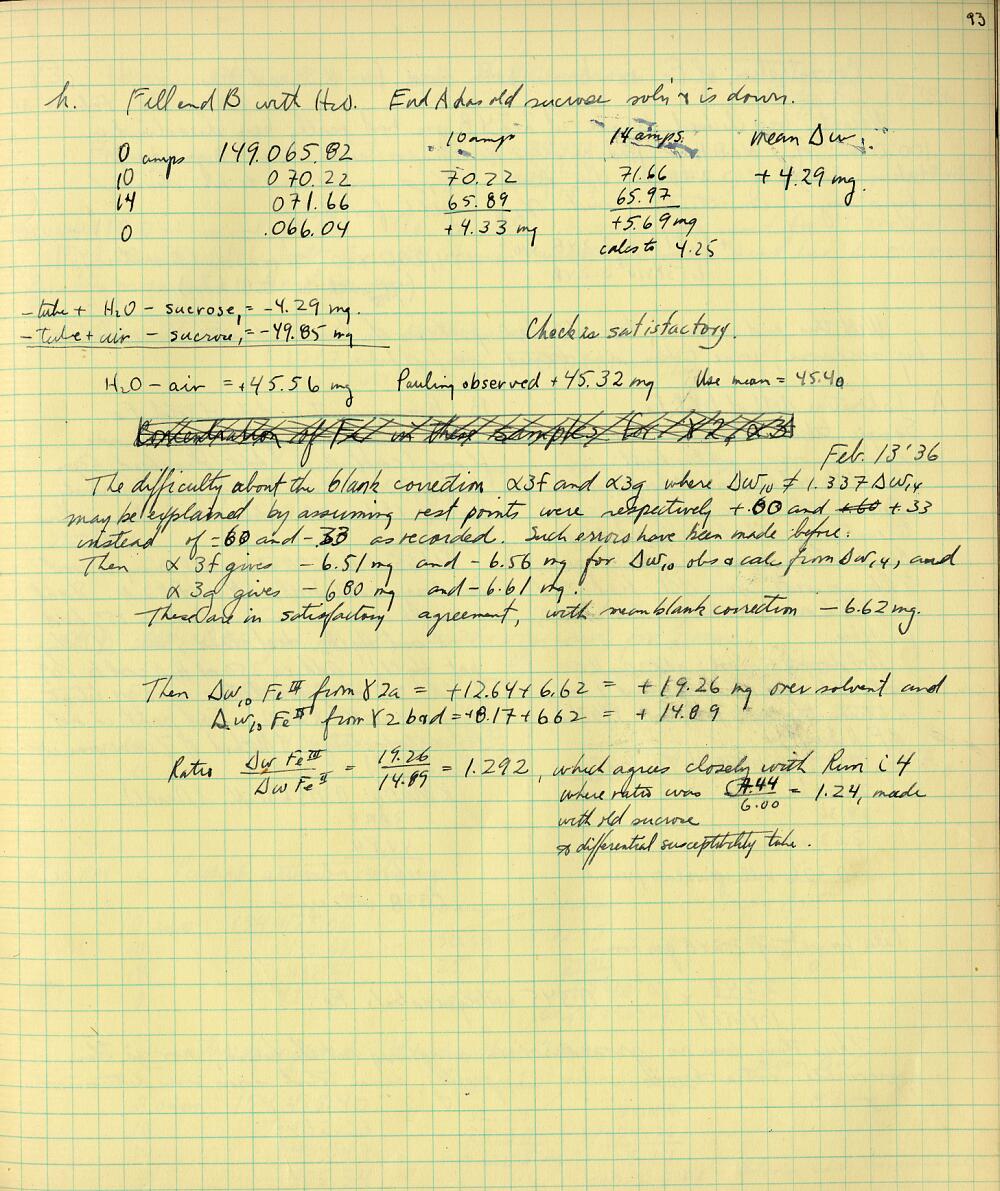 93
h. Fill end B with H2O. End A has old sucrose sol'n & is down.
10 amps 14 amps. mean Δw:
0 amps 149.065.82
10 070.22 70.22 71.66 + 4.29 mg.
14 071.66 65.89 65.97
0 .066.04 +4.33 mg +5.69 mg
calcs to 4.25
- tube + H2O - sucrose, = -4.29 mg.
- tube + air - sucrose, = -49.85 mg
Check is satisfactory.
H2O - air = +45.56 mg Pauling observed +45.32 mg Use mean = 45.40
Concentration of Fe in these samples for γ2, α3
Feb. 13 '36
The difficulty about the blank correction α3f and α3g where Δw10 ≠ 1.337 Δw14
may be explained by assuming rest points were respectively +.60 and +.60 +.33
instead of -.60 and -.33 as recorded. Such errors have been made before.
Then α3f gives - 6.51 mg and - 6.56 mg for Δw10 obs & calc from Δw14, and
α3g gives - 6.80 mg and - 6.61 mg.
These are in satisfactory agreement, with mean blank correction - 6.62 mg.
Then Δw10 Fe III from γ2a = +12.64 + 6.62 = + 19.26 mg over solvent and
Δw10 Fe II from γ2 b and = +8.17 + 6.62 = + 14.89
Ratio Δw Fe III / Δw Fe II = 19.26 / 14.89 = 1.292, which agrees closely with Run i 4
where ratio was 7.44 / 6.00 = 1.24, made
with old sucrose
& differential susceptibility tube.